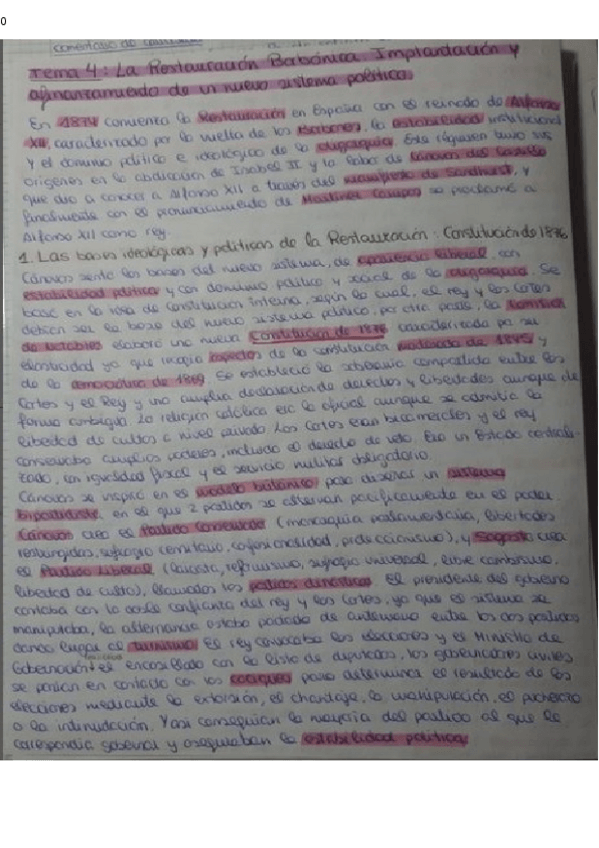 0
comentario de
Tema 4: La Restauración Borbónica: Implantación y
afianzamiento de un nuevo sistema político.
En 1874 comienza la Restauración en España con el reinado de Alfonso
XII, caracterizado por la vuelta de los Borbones, la estabilidad institucional
y el dominio político e ideológico de la oligarquía. Este régimen tuvo sus
orígenes en la abdicación de Isabel II y la labor de Cánovas del Castillo
que dio a conocer a Alfonso XII a través del manifiesto de Sandhurst, y
finalmente con el pronunciamiento de Martínez Campos se proclamó a
Alfonso XII como rey.
1. Las bases ideológicas y políticas de la Restauración: Constitución de 1876
Cánovas sentó las bases del nuevo sistema, de apariencia liberal, con
estabilidad política y con dominio político y social de la oligarquía. Se
basó en la idea de constitución interna, según la cual, el rey y las Cortes
debían ser la base del nuevo sistema político, por otra parte, la comisión
de notables elaboró una nueva Constitución de 1876 caracterizada por su
elasticidad ya que recogía aspectos de la constitución moderada de 1845 y
de la democrática de 1869. Se estableció la soberanía compartida entre las
Cortes y el Rey y una amplia declaración de derechos y libertades aunque de
forma ambigua. La religión católica era la oficial aunque se admitía la
libertad de cultos a nivel privado. Las Cortes eran bicamerales y el rey
conservaba amplios poderes, incluido el derecho de veto. Era un Estado centrali-
zado, con igualdad fiscal y el servicio militar obligatorio.
Cánovas se inspiró en el modelo británico para diseñar un sistema
bipartidista, en el que 2 partidos se alternan pacíficamente en el poder.
Cánovas creó el Partido Conservador (monarquía parlamentaria, libertades
restringidas, sufragio censitario, confesionalidad, proteccionismo), y Sagasta crea
el Partido Liberal (laicista, reformismo, sufragio universal, libre cambismo,
libertad de cultos), llamados los partidos dinásticos. El presidente del gobierno
contaba con la doble confianza del rey y las Cortes, ya que el sistema se
manipulaba, la alternancia estaba pactada de antemano entre los dos partidos
dando lugar al turnismo. El rey convocaba las elecciones y el Ministro de
Gobernación el encasillado con la lista de diputados, los gobernadores civiles
se ponían en contacto con los caciques para determinar el resultado de las
elecciones mediante la extorsión, el chantaje, la manipulación, el pucherazo
o la intimidación. Y así conseguían la mayoría del partido al que le
correspondía gobernar y aseguraban la estabilidad política.